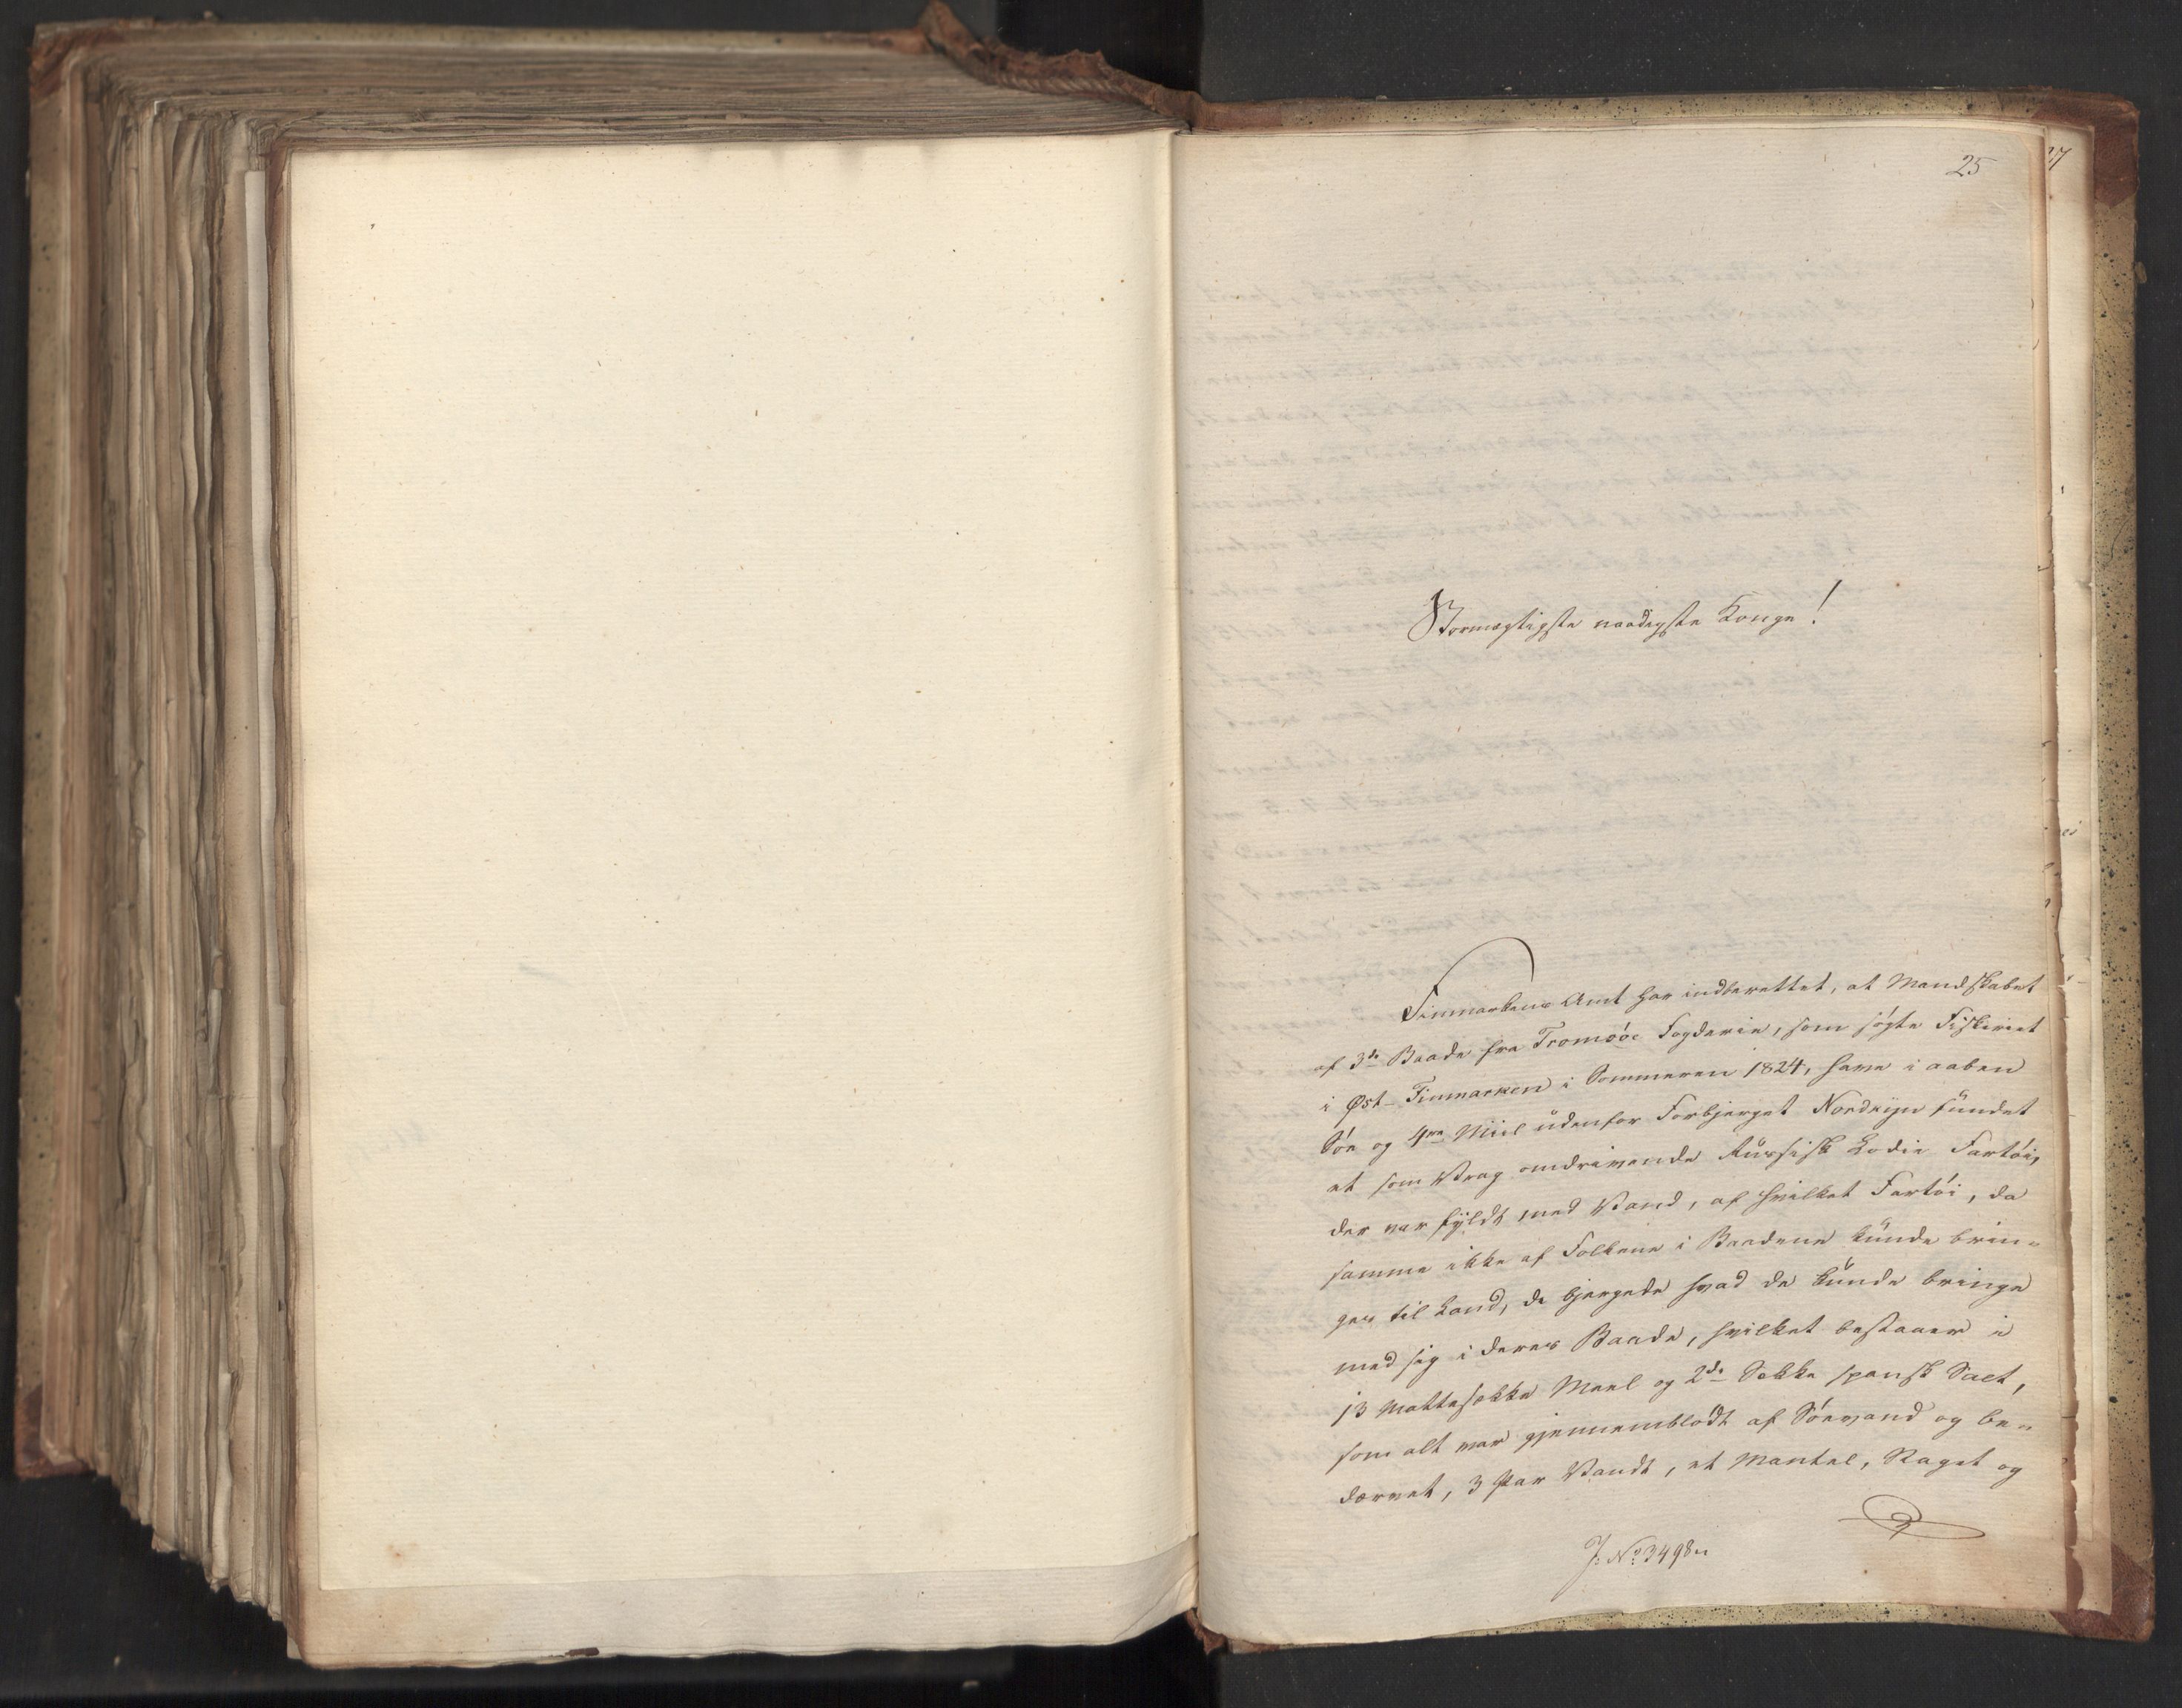 25
27
Stormægtigste naadigste Konge!
Finmarkens Amt har indberettet, at Mandskabet
af 3de Baade fra Tromsøe Fogderie, som søgte Fiskeriet
i Øst-Finmarken i Sommeren 1824, have i aaben
Søe og 4re Miil udenfor Forbjerget Nordkyn fundet
et som Vrag omdrivende Russisk Lodie Fartøi,
der var fyldt med Vand, af hvilket Fartøi, da
samme ikke af Folkene i Baadene kunde brin-
ges til Land, de bjergede hvad de kunde bringe
med sig i deres Baade, hvilket bestaaer i
13 Mattesække Meel og 2de Sække spansk Salt,
som alt var gjennemblødt af Søevand og be-
dærvet, 3 Par Vandt, et Mantel, Raget og
J: No 3498